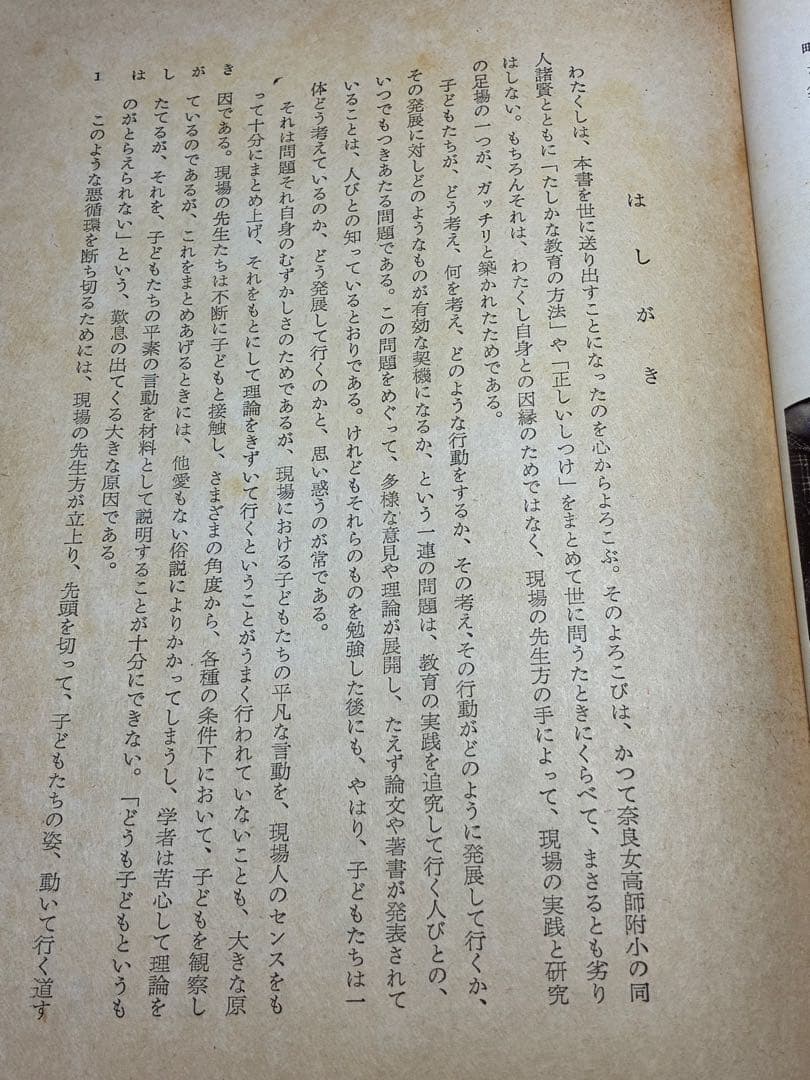 はしがき
わたくしは、本書を世に送り出すことになったのを心からよろこぶ。そのよろこびは、かつて奈良女高師附小の同
人諸賢とともに「たしかな教育の方法」や「正しいしつけ」をまとめて世に問うたときにくらべて、まさるとも劣り
はしない。もちろんそれは、わたくし自身との因縁のためではなく、現場の先生方の手によって、現場の実践と研究
の足場の一つが、ガッチリと築かれたためである。
子どもたちが、どう考え、何を考え、どのような行動をするか、その考え、その行動がどのように発展して行くか、
その発展に対しどのようなものが有効な契機になるか、という一連の問題は、教育の実践を追究して行く人びとの、
いつでもつきあたる問題である。この問題をめぐって、多様な意見や理論が展開し、たえず論文や著書が発表されて
いることは、人びとの知っているとおりである。けれどもそれらのものを勉強した後にも、やはり、子どもたちは一
体どう考えているのか、どう発展して行くのかと、思い惑うのが常である。
それは問題それ自身のむずかしさのためであるが、現場における子どもたちの平凡な言動を、現場人のセンスをも
って十分にまとめ上げ、それをもとにして理論をきずいて行くということがうまく行われていないことも、大きな原
因である。現場の先生たちは不断に子どもと接触し、さまざまの角度から、各種の条件下において、子どもを観察し
ているのであるが、これをまとめあげるときには、他愛もない俗説によりかかってしまうし、学者は苦心して理論を
たてるが、それを、子どもたちの平素の言動を材料として説明することが十分にできない。「どうも子どもというも
のがとらえられない」という、歎息の出てくる大きな原因である。
このような悪循環を断ち切るためには、現場の先生方が立上り、先頭を切って、子どもたちの姿、動いて行く道す
はしがき
1